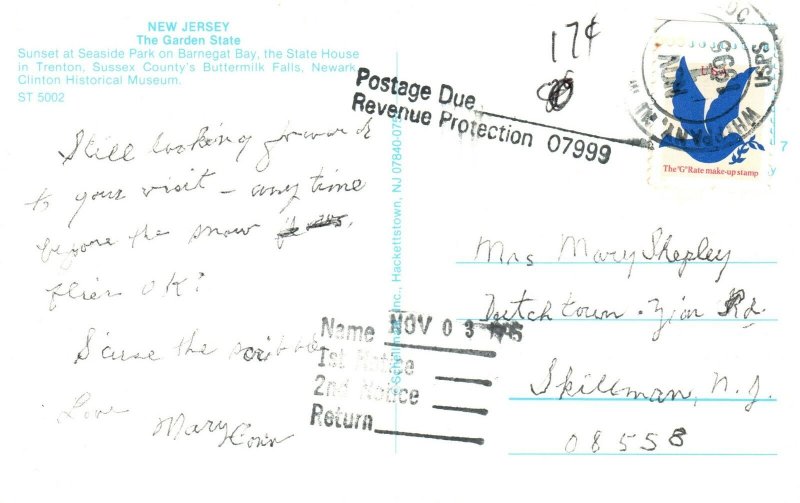 NEW JERSEY
The Garden State
Sunset at Seaside Park on Barnegat Bay, the State House
in Trenton, Sussex County's Buttermilk Falls, Newark,
Clinton Historical Museum.
ST 5002
Still looking forward
to your visit – any time
before the snow
flies OK?
S'cuse the scribble
Love
Mary Conn
17¢
Postage Due
Revenue Protection 07999
USPS
The "G" Rate make-up stamp
Inc., Hackettstown, NJ 07840-075
Name NOV 03 1995
1st Notice
2nd Notice
Return
Mrs Mary Shepley
Dutchtown-Zion Rd.
Skillman, N.J.
08558